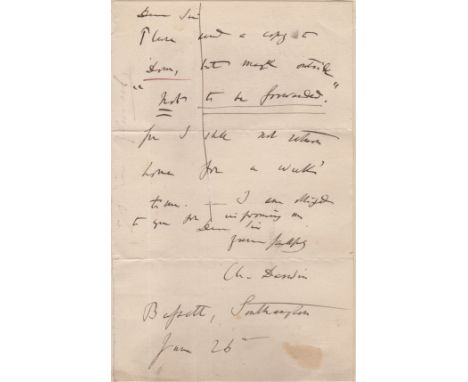 Dear Sir
Please send a copy to
Down, but mark outside
"Not to be forwarded."
for I shall not return
home for a week's
time. — I am obliged
to you for informing me
Dear Sir
yours faithfully
Ch. Darwin
Bassett, Southampton
June 26